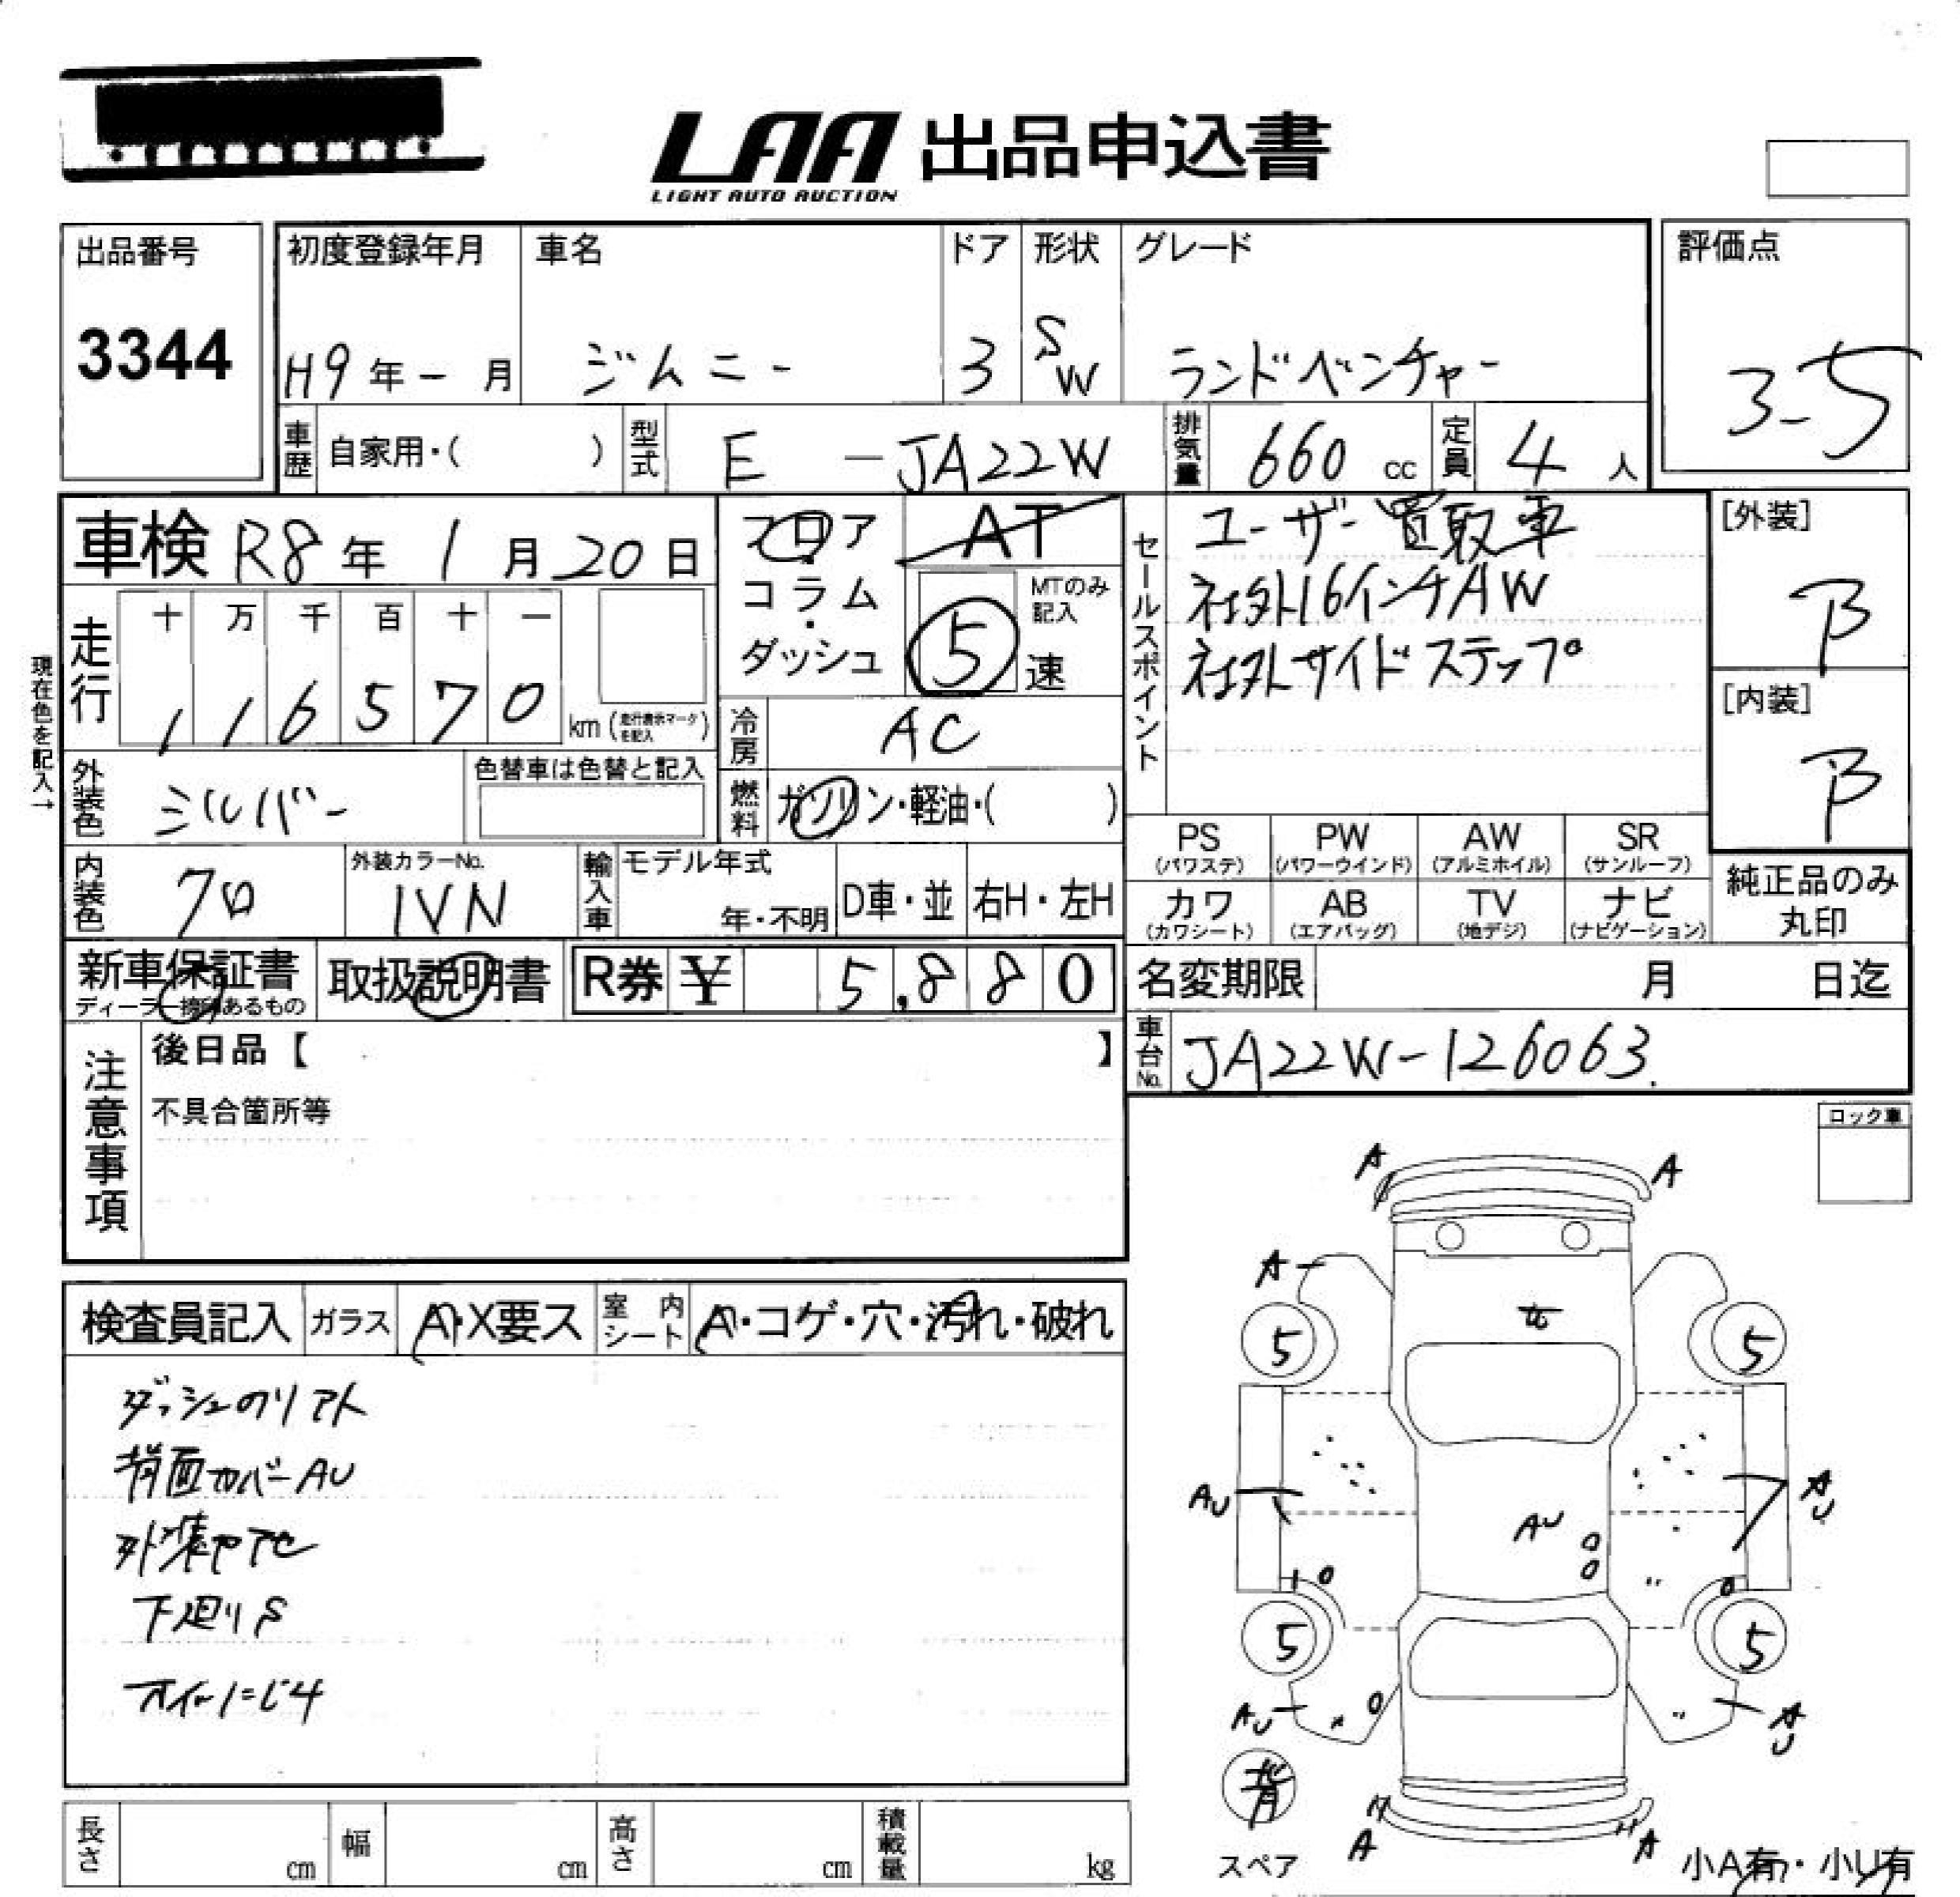 LAA 出品申込書
LIGHT AUTO AUCTION
出品番号
3344
初度登録年月
H9年 - 月
車名
ジムニー
ドア
3
形状
SW
グレード
ランドベンチャー
評価点
3-5
車歴 自家用・( )
型式 E - JA22W
排気量 660 cc
定員 4 人
車検 R8年 1月20日
フロア・コラム・ダッシュ
AT
MTのみ記入
5 速
セールスポイント
ユーザー買取車
社外16インチAW
社外サイドステップ
[外装]
B
[内装]
B
現在色を記入→
走行
十 万 千 百 十 一
1 1 6 5 7 0 km (走行表示マークを記入)
冷房 AC
外装色 シルバー
色替車は色替と記入
燃料 ガソリン・軽油・( )
内装色 70
外装カラーNo.
1VN
輸入車
モデル年式
年・不明
D車・並
右H・左H
PS (パワステ)
PW (パワーウインド)
AW (アルミホイル)
SR (サンルーフ)
カワ (カワシート)
AB (エアバッグ)
TV (地デジ)
ナビ (ナビゲーション)
純正品のみ丸印
新車保証書
ディーラー捺印あるもの
取扱説明書
R券 ¥ 5,880
名変期限 月 日迄
車台No. JA22W-126063.
注意事項
後日品【 】
不具合箇所等
ロック車
検査員記入
ガラス A・X要ス
室内シート A・コゲ・穴・汚れ・破れ
ダッシュのリアト
背面カバーAU
外装ヤアセ
下廻りS
オイルにじみ
A
A
A
5
5
AU
AU
AU
5
5
AU
AU
背
スペア
A
A
小A有・小U有
長さ cm
幅 cm
高さ cm
積載量 kg